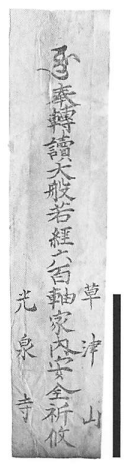 草津山
奉轉讀大般若經六百軸家内安全祈攸
光泉寺